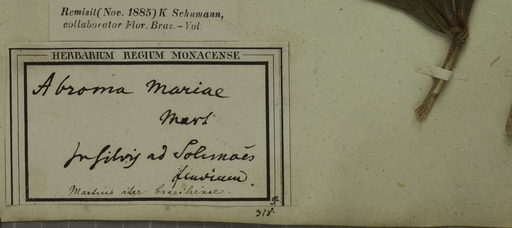 Remisit (Nov. 1885) K Schumann,
collaborator Flor. Bras.- Vol.
HERBARIUM REGIUM MONACENSE
Abroma Mariae
Mart
In silvis ad Solimoës
fluvium.
Martius iter brasiliense.
318.